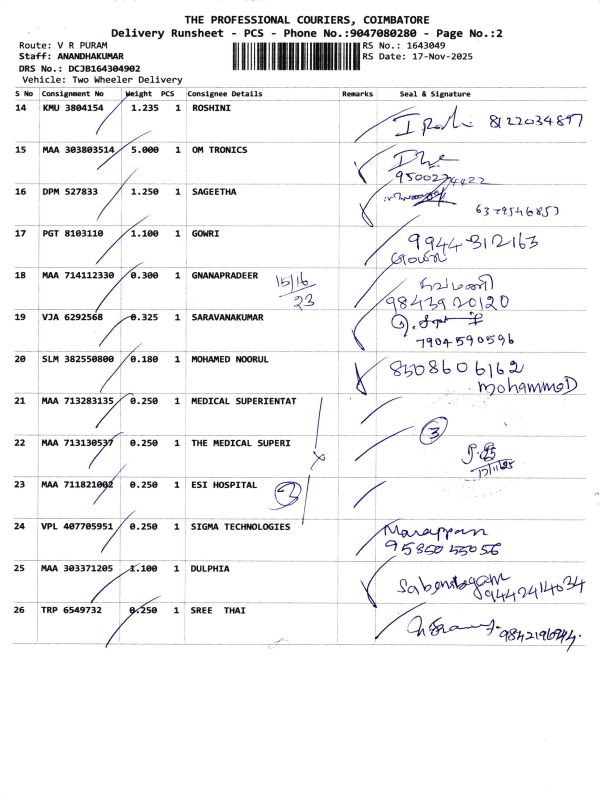 THE PROFESSIONAL COURIERS, COIMBATORE
Delivery Runsheet - PCS - Phone No.:9047080280 - Page No.:2
Route: V R PURAM RS No.: 1643049
Staff: ANANDHAKUMAR RS Date: 17-Nov-2025
DRS No.: DCJB164304902
Vehicle: Two Wheeler Delivery
S No Consignment No Weight PCS Consignee Details Remarks Seal & Signature
14 KMU 3804154 1.235 1 ROSHINI 8122034897
15 MAA 303803514 5.000 1 OM TRONICS
9500274022
16 DPM 527833 1.250 1 SAGEETHA
6379546853
17 PGT 8103110 1.100 1 GOWRI 9944312163
18 MAA 714112330 0.300 1 GNANAPRADEER 15/16
23
9843920120
19 VJA 6292568 0.325 1 SARAVANAKUMAR
7904590596
20 SLM 382550800 0.180 1 MOHAMED NOORUL 8508606162
mohammeD
21 MAA 713283135 0.250 1 MEDICAL SUPERIENTAT
3
22 MAA 713130537 0.250 1 THE MEDICAL SUPERI
17/11/25
23 MAA 711821002 0.250 1 ESI HOSPITAL 3
24 VPL 407705951 0.250 1 SIGMA TECHNOLOGIES Marappan
9585055056
25 MAA 303371205 1.100 1 DULPHIA
9442414634
26 TRP 6549732 0.250 1 SREE THAI